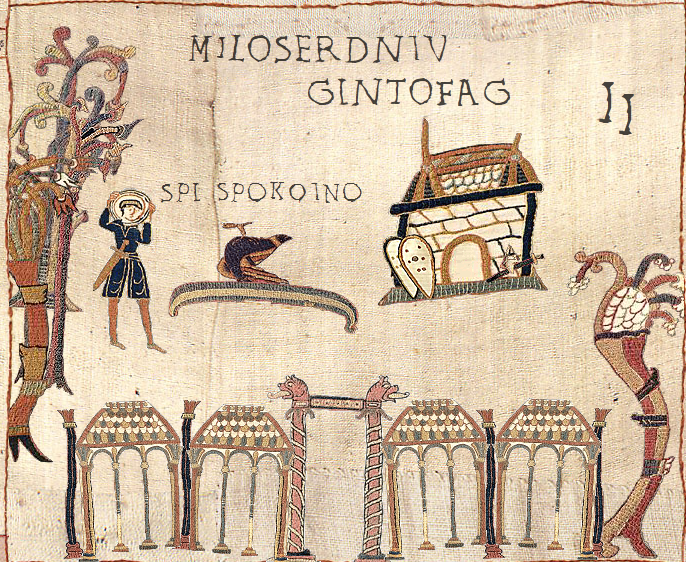 MILOSERDNIV
GINTOFAG
IJ
SPI SPOKOINO